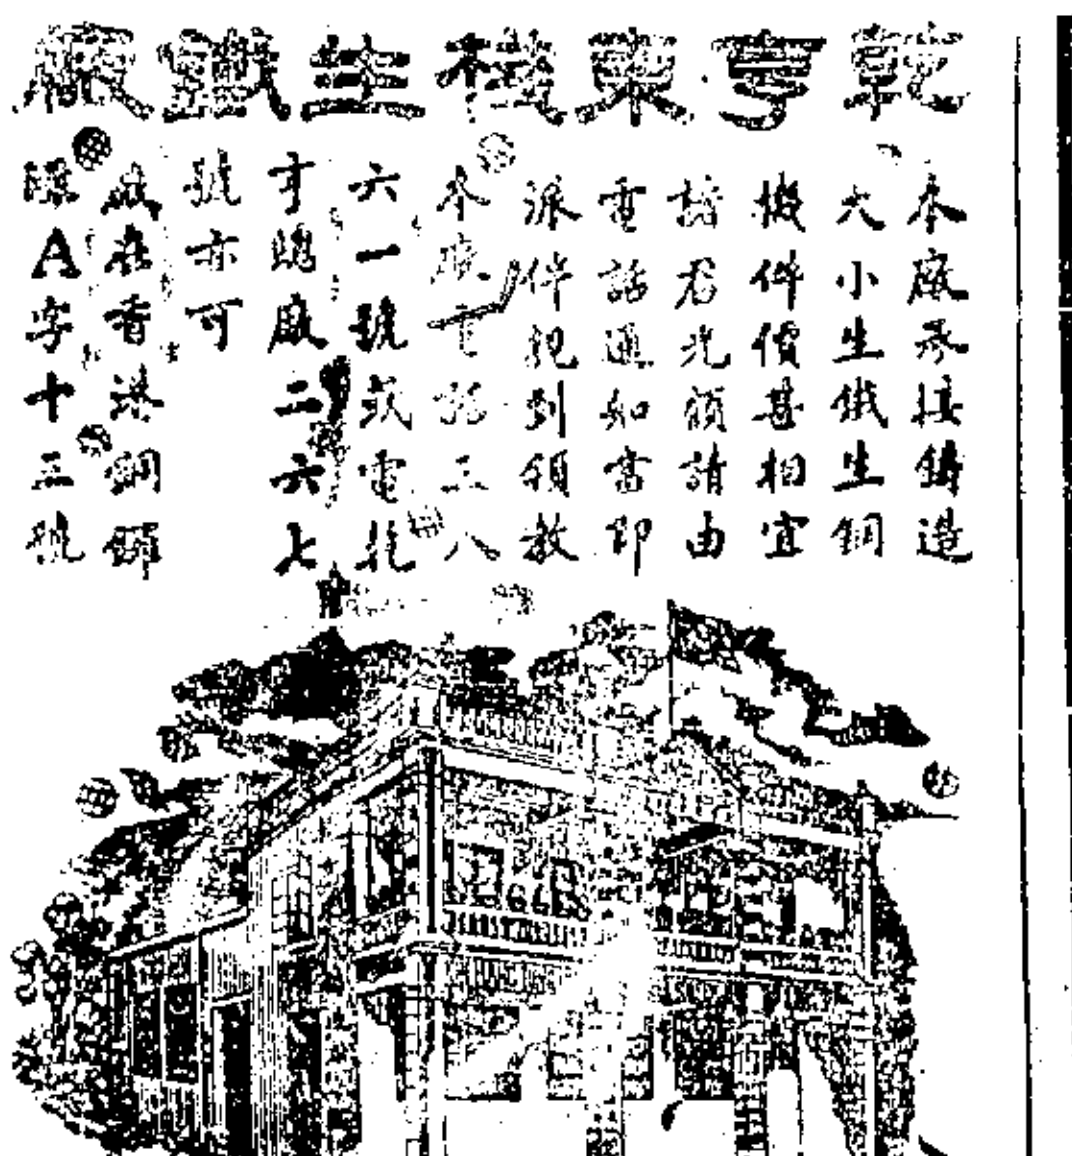 乾亨東棧生鐵廠
本廠承接鑄造
大小生鐵生銅
機件價甚相宜
諸君光顧請由
電話通知當即
派伴到領教
本廠電話三八
六一號或電托
總廠二六七
號亦可
廠在香港銅鑼
環A字十三號